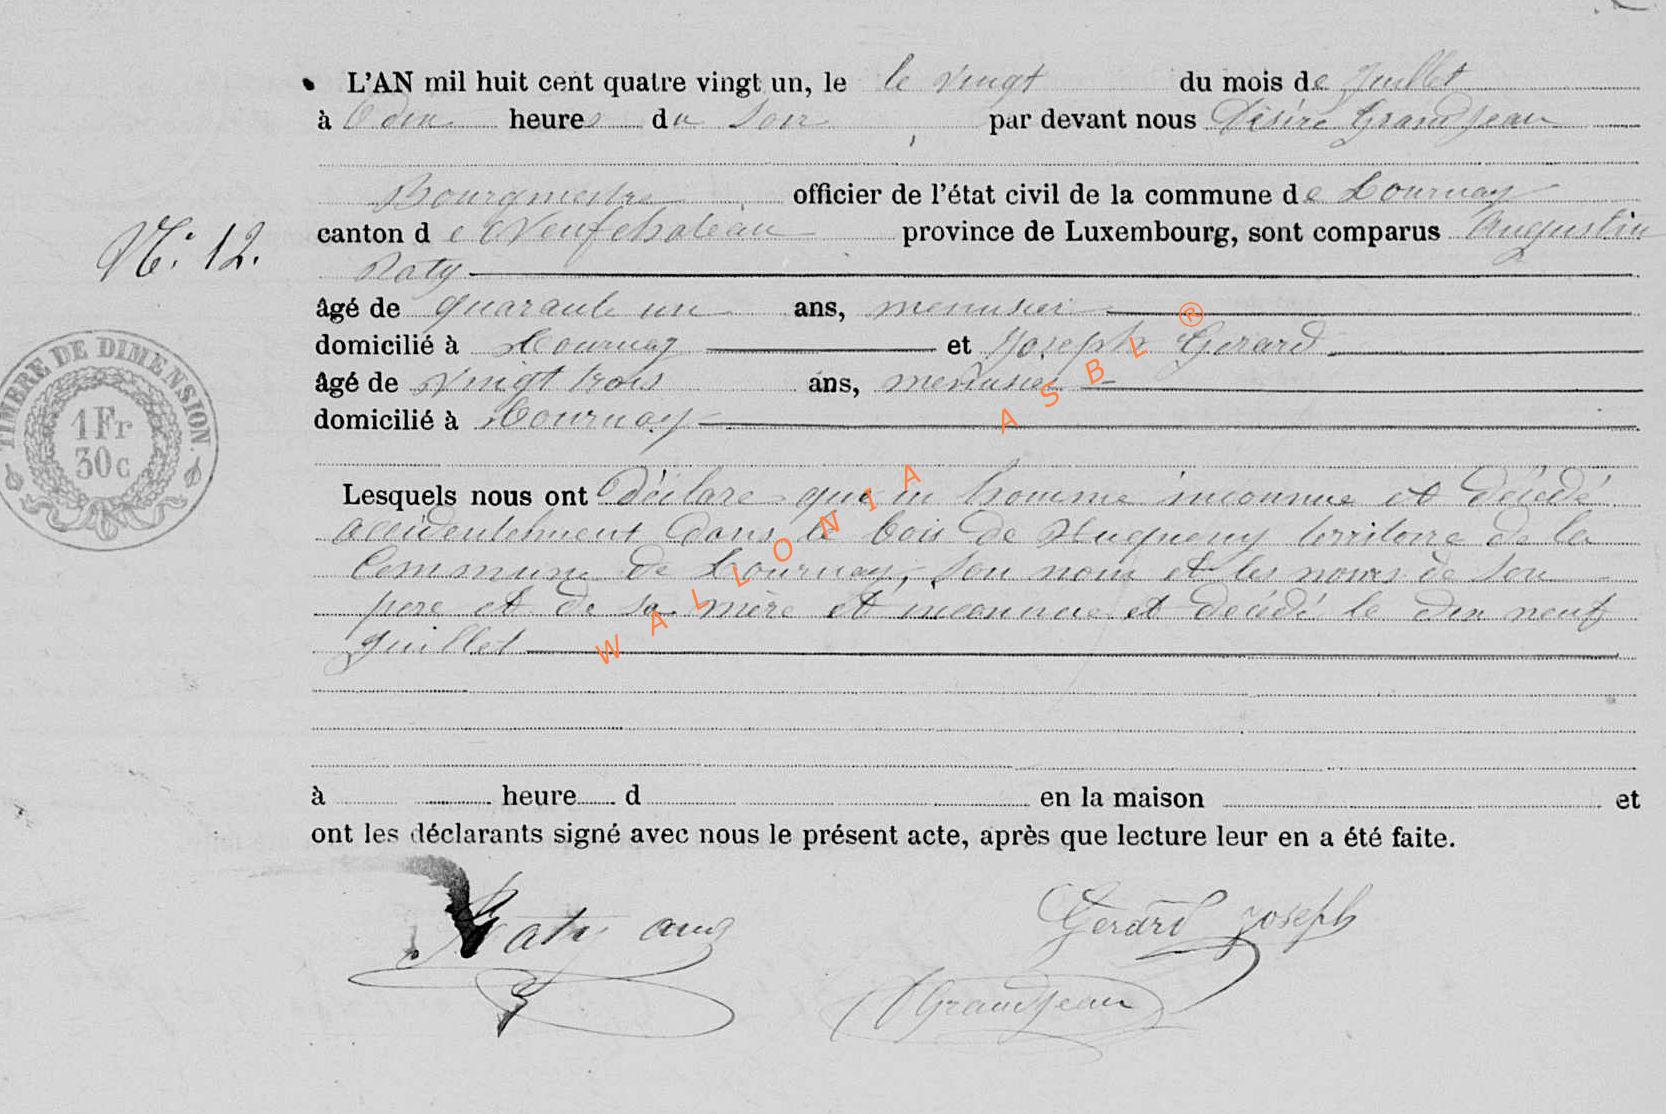 L'AN mil huit cent quatre vingt un, le le vingt du mois de Juillet
à heures du Soir par devant nous Désiré Grandjean
Bourgmestre officier de l'état civil de la commune de Tournay
N.° 12.
canton d e Neufchateau province de Luxembourg, sont comparus Augustin
Raty
âgé de quarante un ans, menusier
domicilié à Tournay et Joseph Gerard
âgé de Vingt trois ans, menusier
domicilié à Tournay
TIMBRE DE DIMENSION.
1 Fr
30 c
Lesquels nous ont déclare que un homme inconnue et décédé
accidentelement dans le bois de territoire de la
Commune de Tournay, son nom et les noms de son
pere et de sa mère et inconnue et décédé le dix neuf
Juillet
à heure d en la maison et
ont les déclarants signé avec nous le présent acte, après que lecture leur en a été faite.
Raty aug Gerard Joseph
DGrandjean
WALLONIA ASBL ®